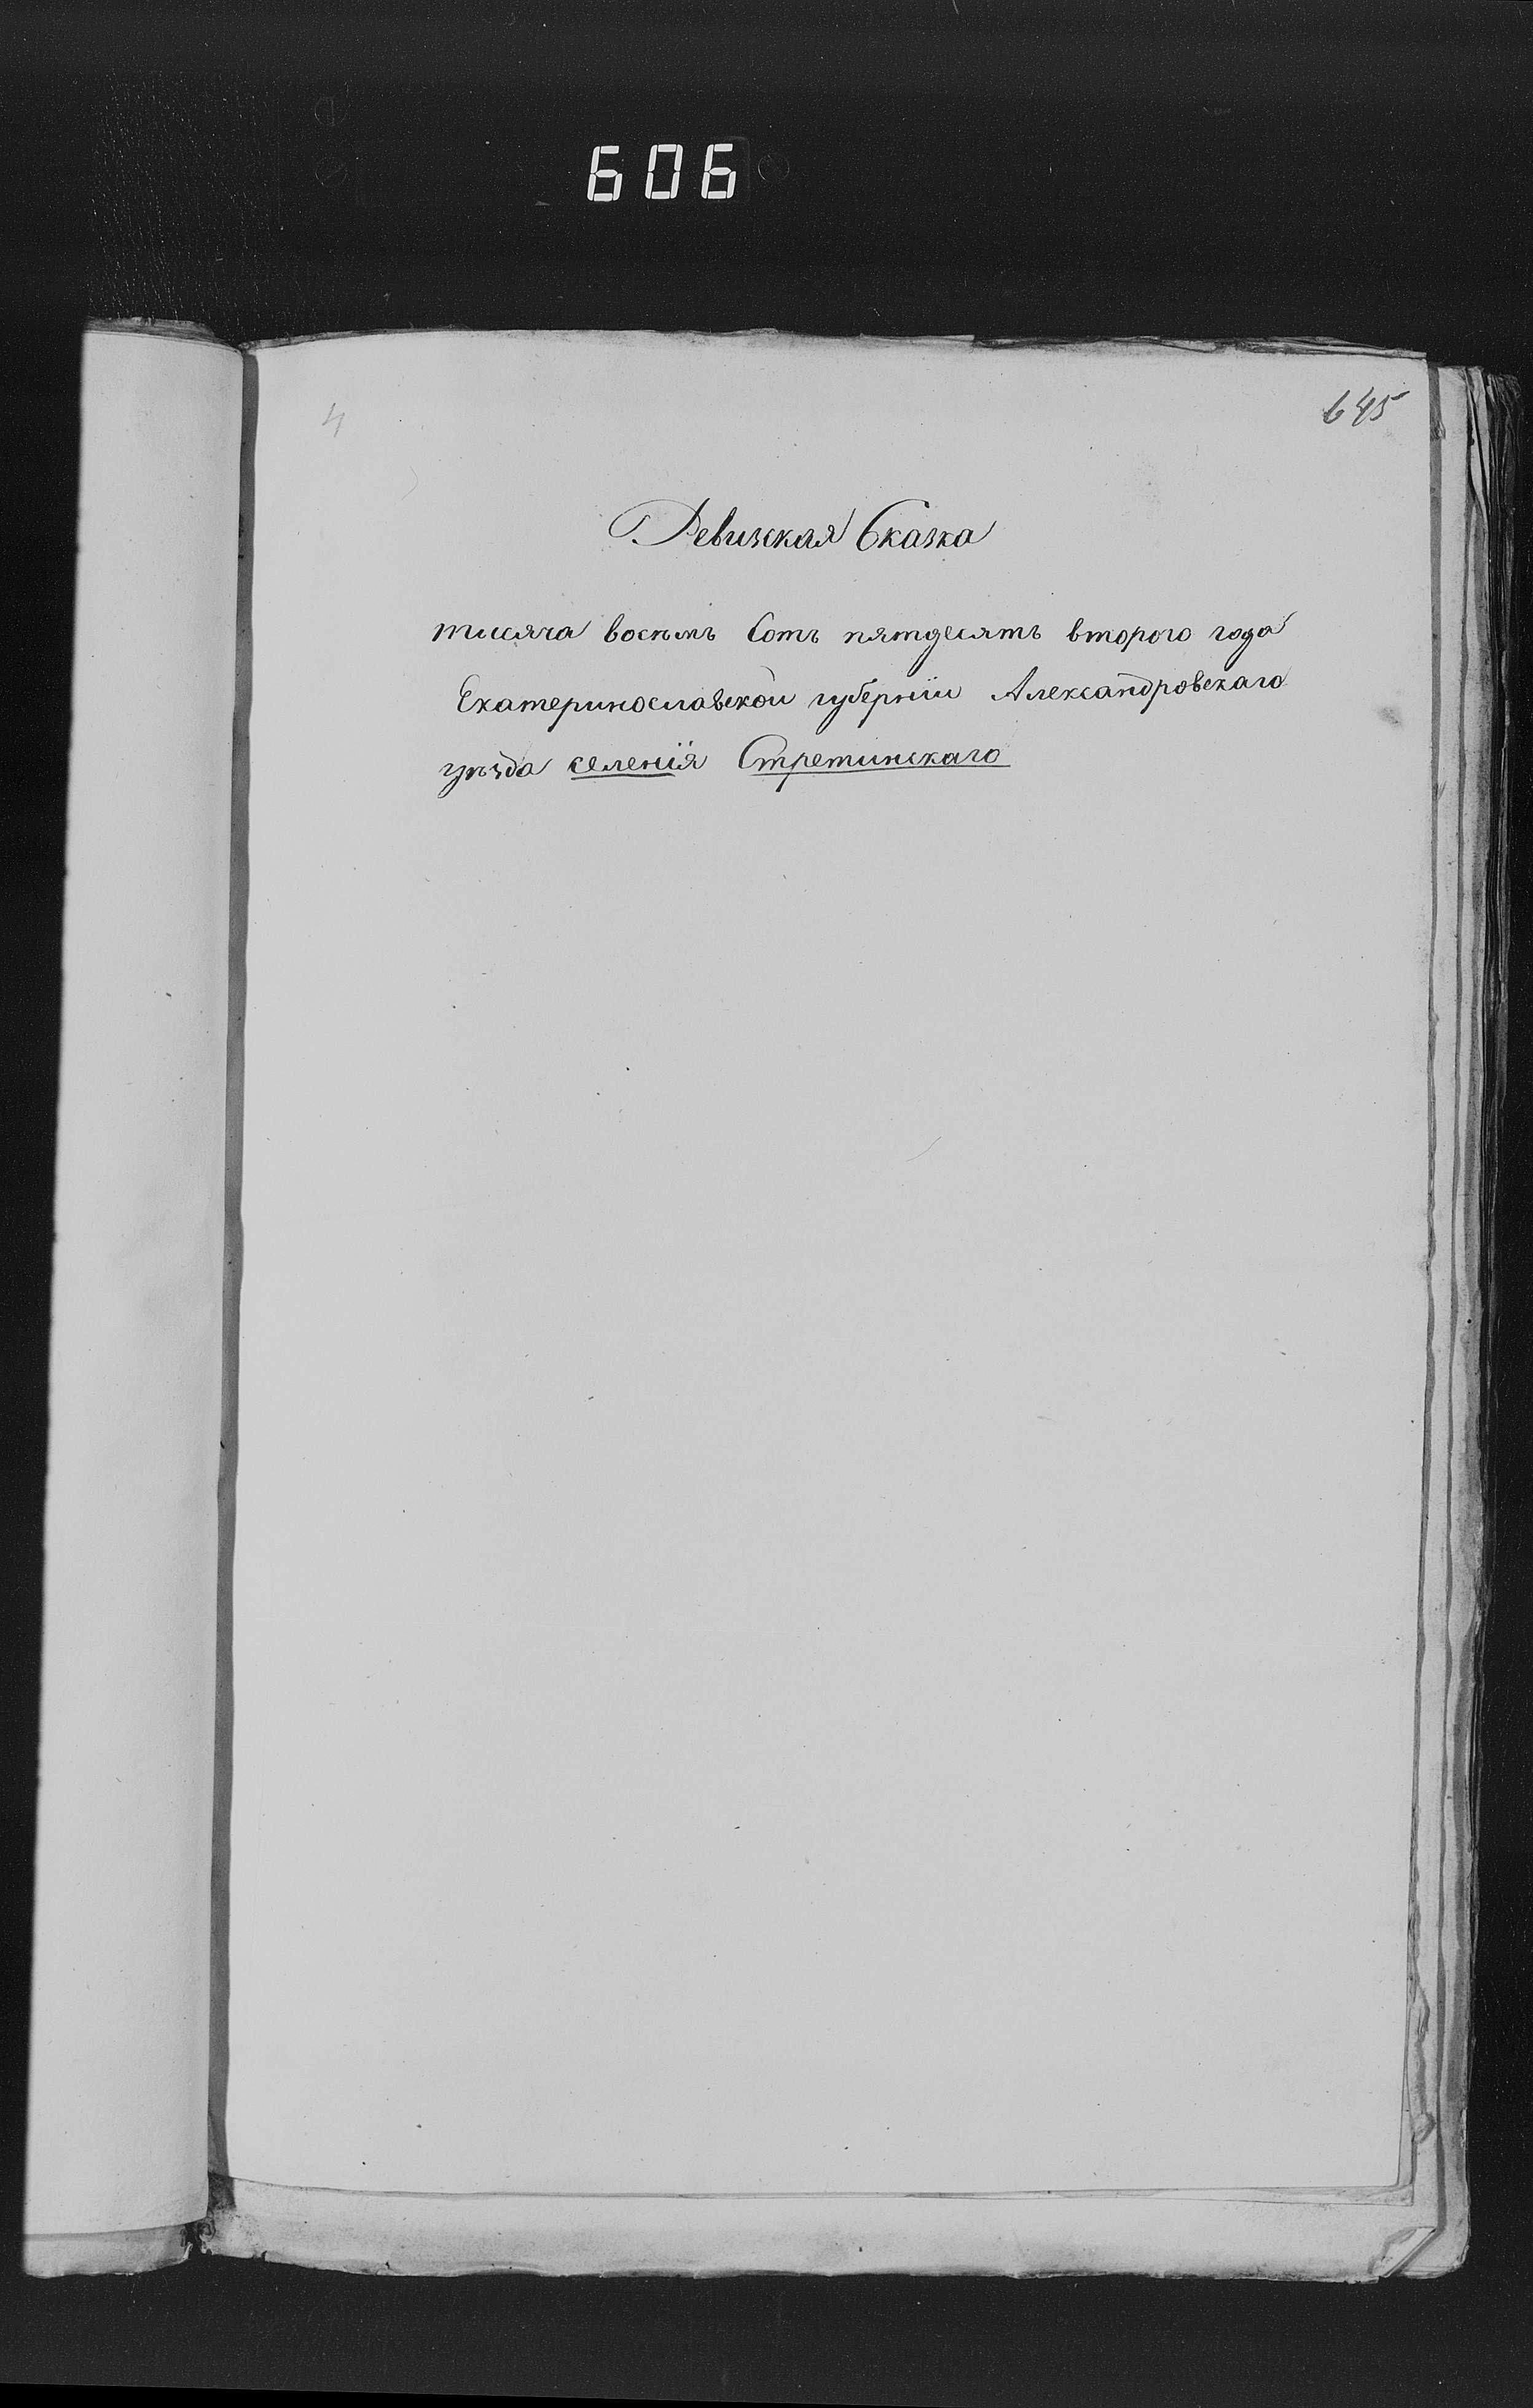 606
4
645
Ревизская Сказка
тисяча восѣмъ Сотъ пятдесятъ второго года
Екатеринославской губерніи Александровскаго
уѣзда селенія Стретинскаго